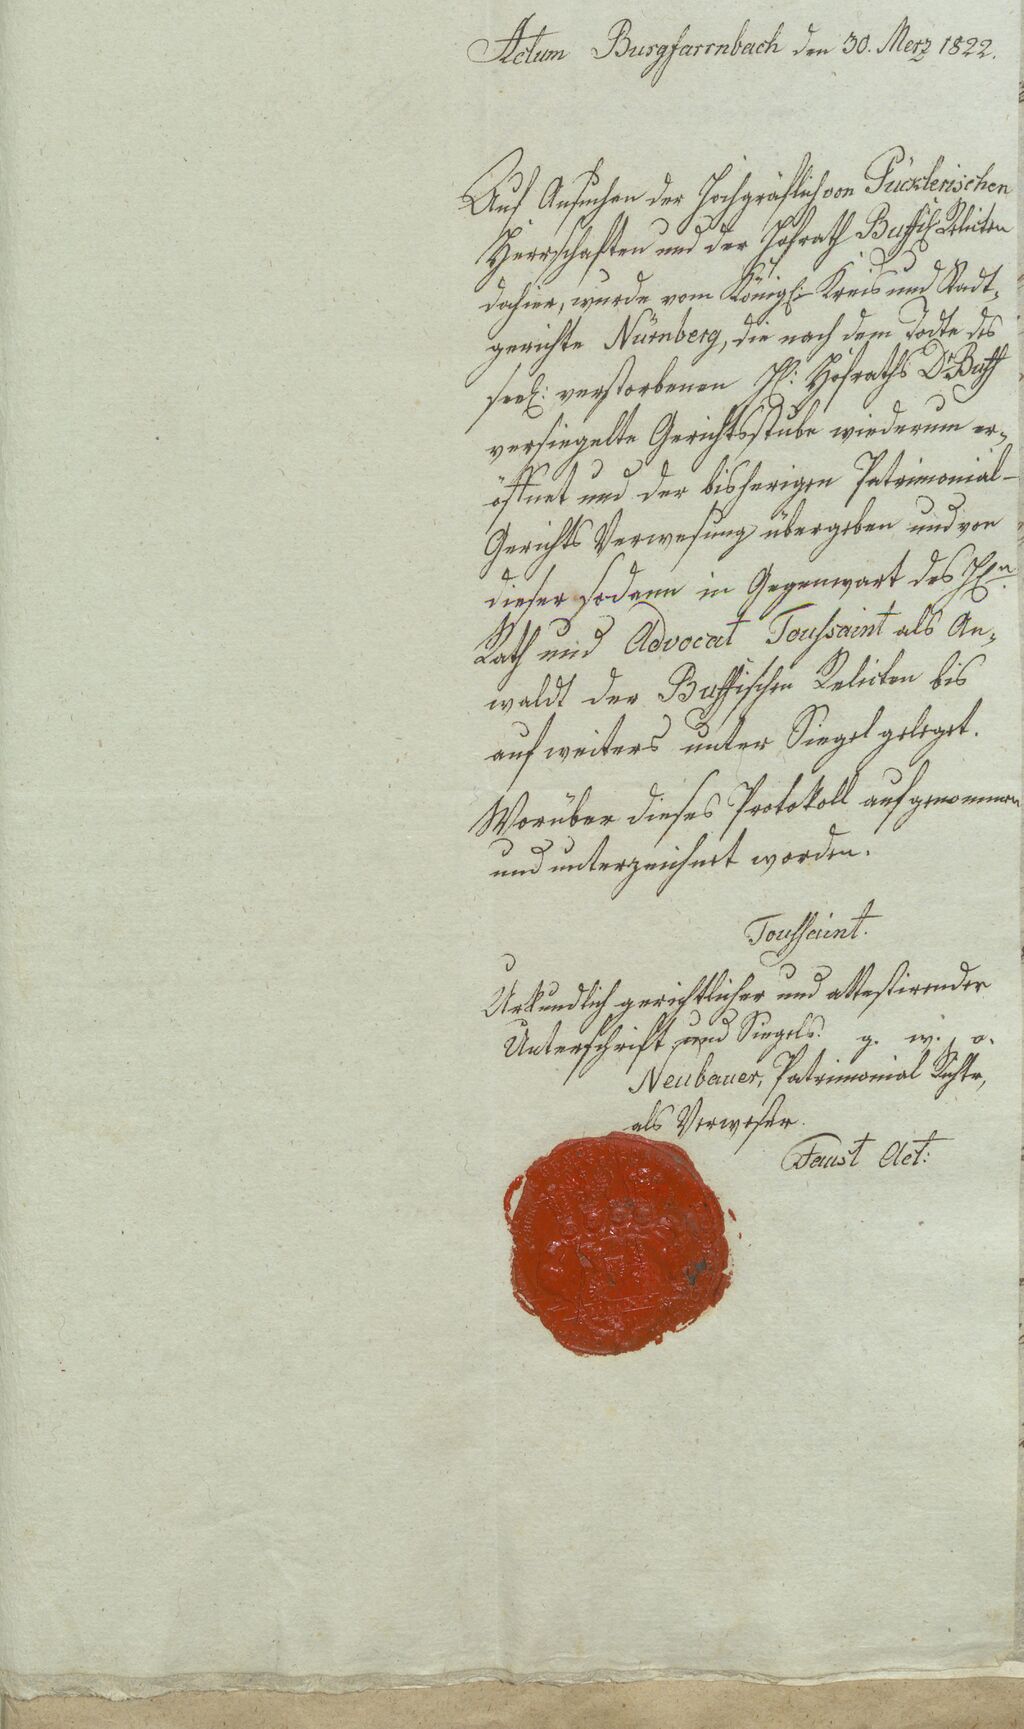 Actum Burgfarrnbach den 30. Merz 1822.
Auf Ansuchen der Hochgräflich von Pücklerischen
Herrschaften und der Hofrath Buffisch Relicten
dahier, wurde vom Königl: Kreis und Stadt-
gerichte Nürnberg, die nach dem Todte des
seel: verstorbenen H: Hofraths Dr Buff
versiegelte Gerichtsstube wiederum er-
öffnet und der bisherigen Patrimonial-
Gerichts Verwesung übergeben und von
dieser sodann in Gegenwart des Hrn
Rath und Advocat Toussaint als An-
waldt der Buffischen Relicten bis
auf weiters unter Siegel geleget.
Worüber dieses Protokoll aufgenommen
und unterzeichnet worden.
Toussaint.
Urkundlich gerichtlicher und attestirender
Unterschrift und Siegels. g. w. o.
Neubauer, Patrimonial Richter,
als Verweser.
Faust Act: